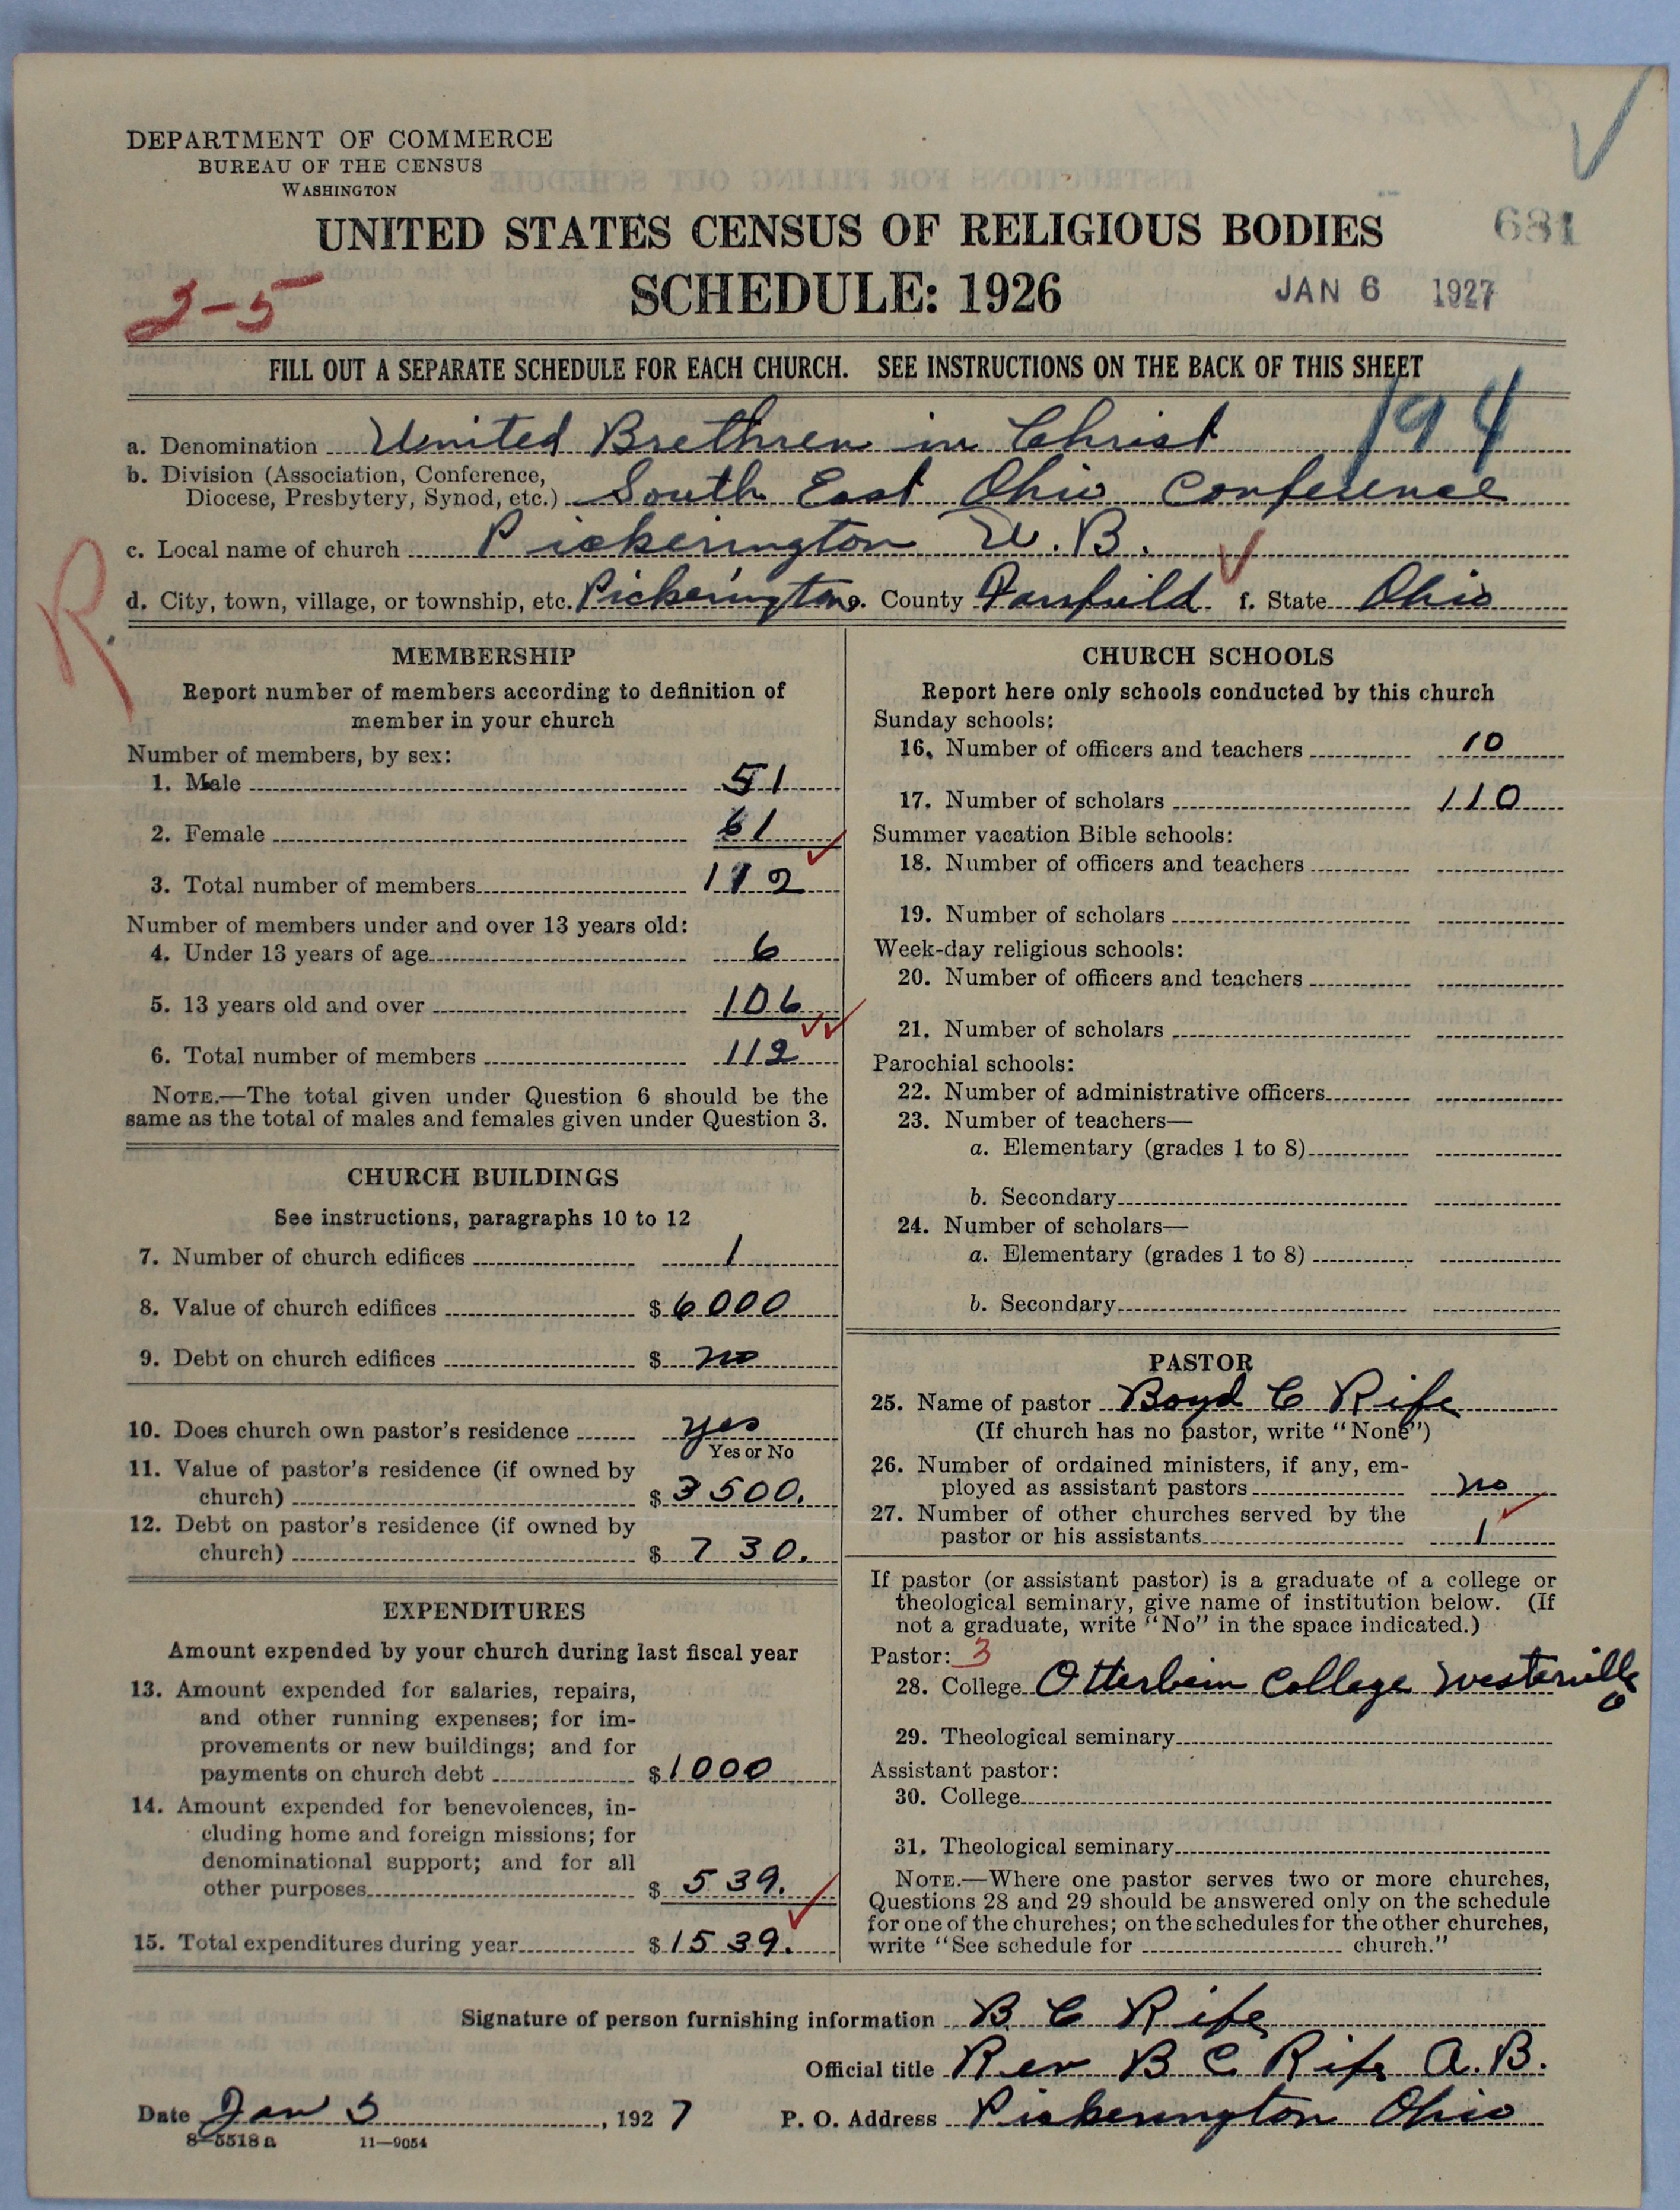 DEPARTMENT OF COMMERCE
BUREAU OF THE CENSUS
WASHINGTON
UNITED STATES CENSUS OF RELIGIOUS BODIES
681
SCHEDULE: 1926
JAN 6 1927
2-5
FILL OUT A SEPARATE SCHEDULE FOR EACH CHURCH. SEE INSTRUCTIONS ON THE BACK OF THIS SHEET
194
a. Denomination United Brethren in Christ
b. Division (Association, Conference,
Diocese, Presbytery, Synod, etc.) South East Ohio Conference
c. Local name of church Pickerington U.B.
d. City, town, village, or township, etc. Pickerington e. County Fairfield f. State Ohio
R
MEMBERSHIP
Report number of members according to definition of
member in your church
Number of members, by sex:
1. Male 51
2. Female 61
3. Total number of members 112
Number of members under and over 13 years old:
4. Under 13 years of age 6
5. 13 years old and over 106
6. Total number of members 112
NOTE.—The total given under Question 6 should be the
same as the total of males and females given under Question 3.
CHURCH BUILDINGS
See instructions, paragraphs 10 to 12
7. Number of church edifices 1
8. Value of church edifices $ 6000
9. Debt on church edifices $ no
10. Does church own pastor's residence yes
Yes or No
11. Value of pastor's residence (if owned by
church) $ 3500.
12. Debt on pastor's residence (if owned by
church) $ 730.
EXPENDITURES
Amount expended by your church during last fiscal year
13. Amount expended for salaries, repairs,
and other running expenses; for im-
provements or new buildings; and for
payments on church debt $ 1000
14. Amount expended for benevolences, in-
cluding home and foreign missions; for
denominational support; and for all
other purposes $ 539.
15. Total expenditures during year $ 1539.
CHURCH SCHOOLS
Report here only schools conducted by this church
Sunday schools:
16. Number of officers and teachers 10
17. Number of scholars 110
Summer vacation Bible schools:
18. Number of officers and teachers
19. Number of scholars
Week-day religious schools:
20. Number of officers and teachers
21. Number of scholars
Parochial schools:
22. Number of administrative officers
23. Number of teachers—
a. Elementary (grades 1 to 8)
b. Secondary
24. Number of scholars—
a. Elementary (grades 1 to 8)
b. Secondary
PASTOR
25. Name of pastor Boyd C Rife
(If church has no pastor, write "None")
26. Number of ordained ministers, if any, em-
ployed as assistant pastors no
27. Number of other churches served by the
pastor or his assistants 1
If pastor (or assistant pastor) is a graduate of a college or
theological seminary, give name of institution below. (If
not a graduate, write "No" in the space indicated.)
Pastor: 3
28. College Otterbein College Westerville
O
29. Theological seminary
Assistant pastor:
30. College
31. Theological seminary
NOTE.—Where one pastor serves two or more churches,
Questions 28 and 29 should be answered only on the schedule
for one of the churches; on the schedules for the other churches,
write "See schedule for church."
Signature of person furnishing information B. C Rife
Official title Rev B C Rife A.B.
Date Jan 5, 1927 P. O. Address Pickerington Ohio
8—5518 a 11—9054